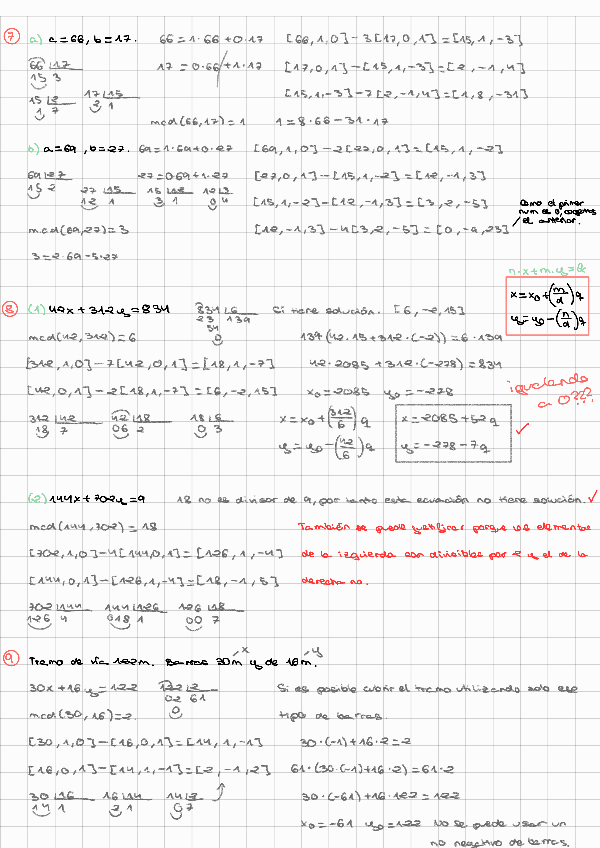 7 a) a=66, b=17. 66=1·66+0·17 [66,1,0]-3[17,0,1]=[15,1,-3]
66 17 17=0·66+1·17 [17,0,1]-[15,1,-3]=[2,-1,4]
15 3
15 2 17 15 [15,1,-3]-7[2,-1,4]=[1,8,-31]
1 7 2 1
mcd(66,17)=1 1=8·66-31·17
b) a=69, b=27. 69=1·69+0·27 [69,1,0]-2[27,0,1]=[15,1,-2]
69 27 27=0·69+1·27 [27,0,1]-[15,1,-2]=[12,-1,3]
15 2 27 15 15 12 12 3
12 1 3 1 0 4 [15,1,-2]-[12,-1,3]=[3,2,-5]
Como el primer
num es 0, cogemos
el anterior.
mcd(69,27)=3 [12,-1,3]-4[3,2,-5]=[0,-9,23]
3=2·69-5·27
n·x+m·y=b
x=x0+(m/d)q
y=y0-(n/d)q
8 (1) 42x+312y=834 834 6 Si tiene solución. [6,-2,15]
23 139
54
0
mcd(42,312)=6 139(42·15+312·(-2))=6·139
[312,1,0]-7[42,0,1]=[18,1,-7] 42·2085+312·(-278)=834
[42,0,1]-2[18,1,-7]=[6,-2,15] x0=2085 y0=-278
igualando
a 0???
312 42 42 18 18 6 x=x0+(312/6)q x=2085+52q
18 7 06 2 0 3
y=y0-(42/6)q y=-278-7q ✓
(2) 144x+702y=9 18 no es divisor de 9, por tanto esta ecuación no tiene solución. ✓
mcd(144,702)=18 También se puede justificar porque los elementos
[702,1,0]-4[144,0,1]=[126,1,-4] de la izquierda son divisibles por 2 y el de la
[144,0,1]-[126,1,-4]=[18,-1,5] derecha no.
702 144 144 126 126 18
126 4 018 1 00 7
9 Tramo de vía 122m. Barras 30m y de 16m.
x y
30x+16y=122 122 2 Si es posible cubrir el tramo utilizando solo ese
02 61
0
mcd(30,16)=2. tipo de barras.
[30,1,0]-[16,0,1]=[14,1,-1] 30·(-1)+16·2=2
[16,0,1]-[14,1,-1]=[2,-1,2] 61·(30·(-1)+16·2)=61·2
30 16 16 14 14 2 30·(-61)+16·122=122
14 1 2 1 0 7
x0=-61 y0=122 No se puede usar un
no negativo de barras.